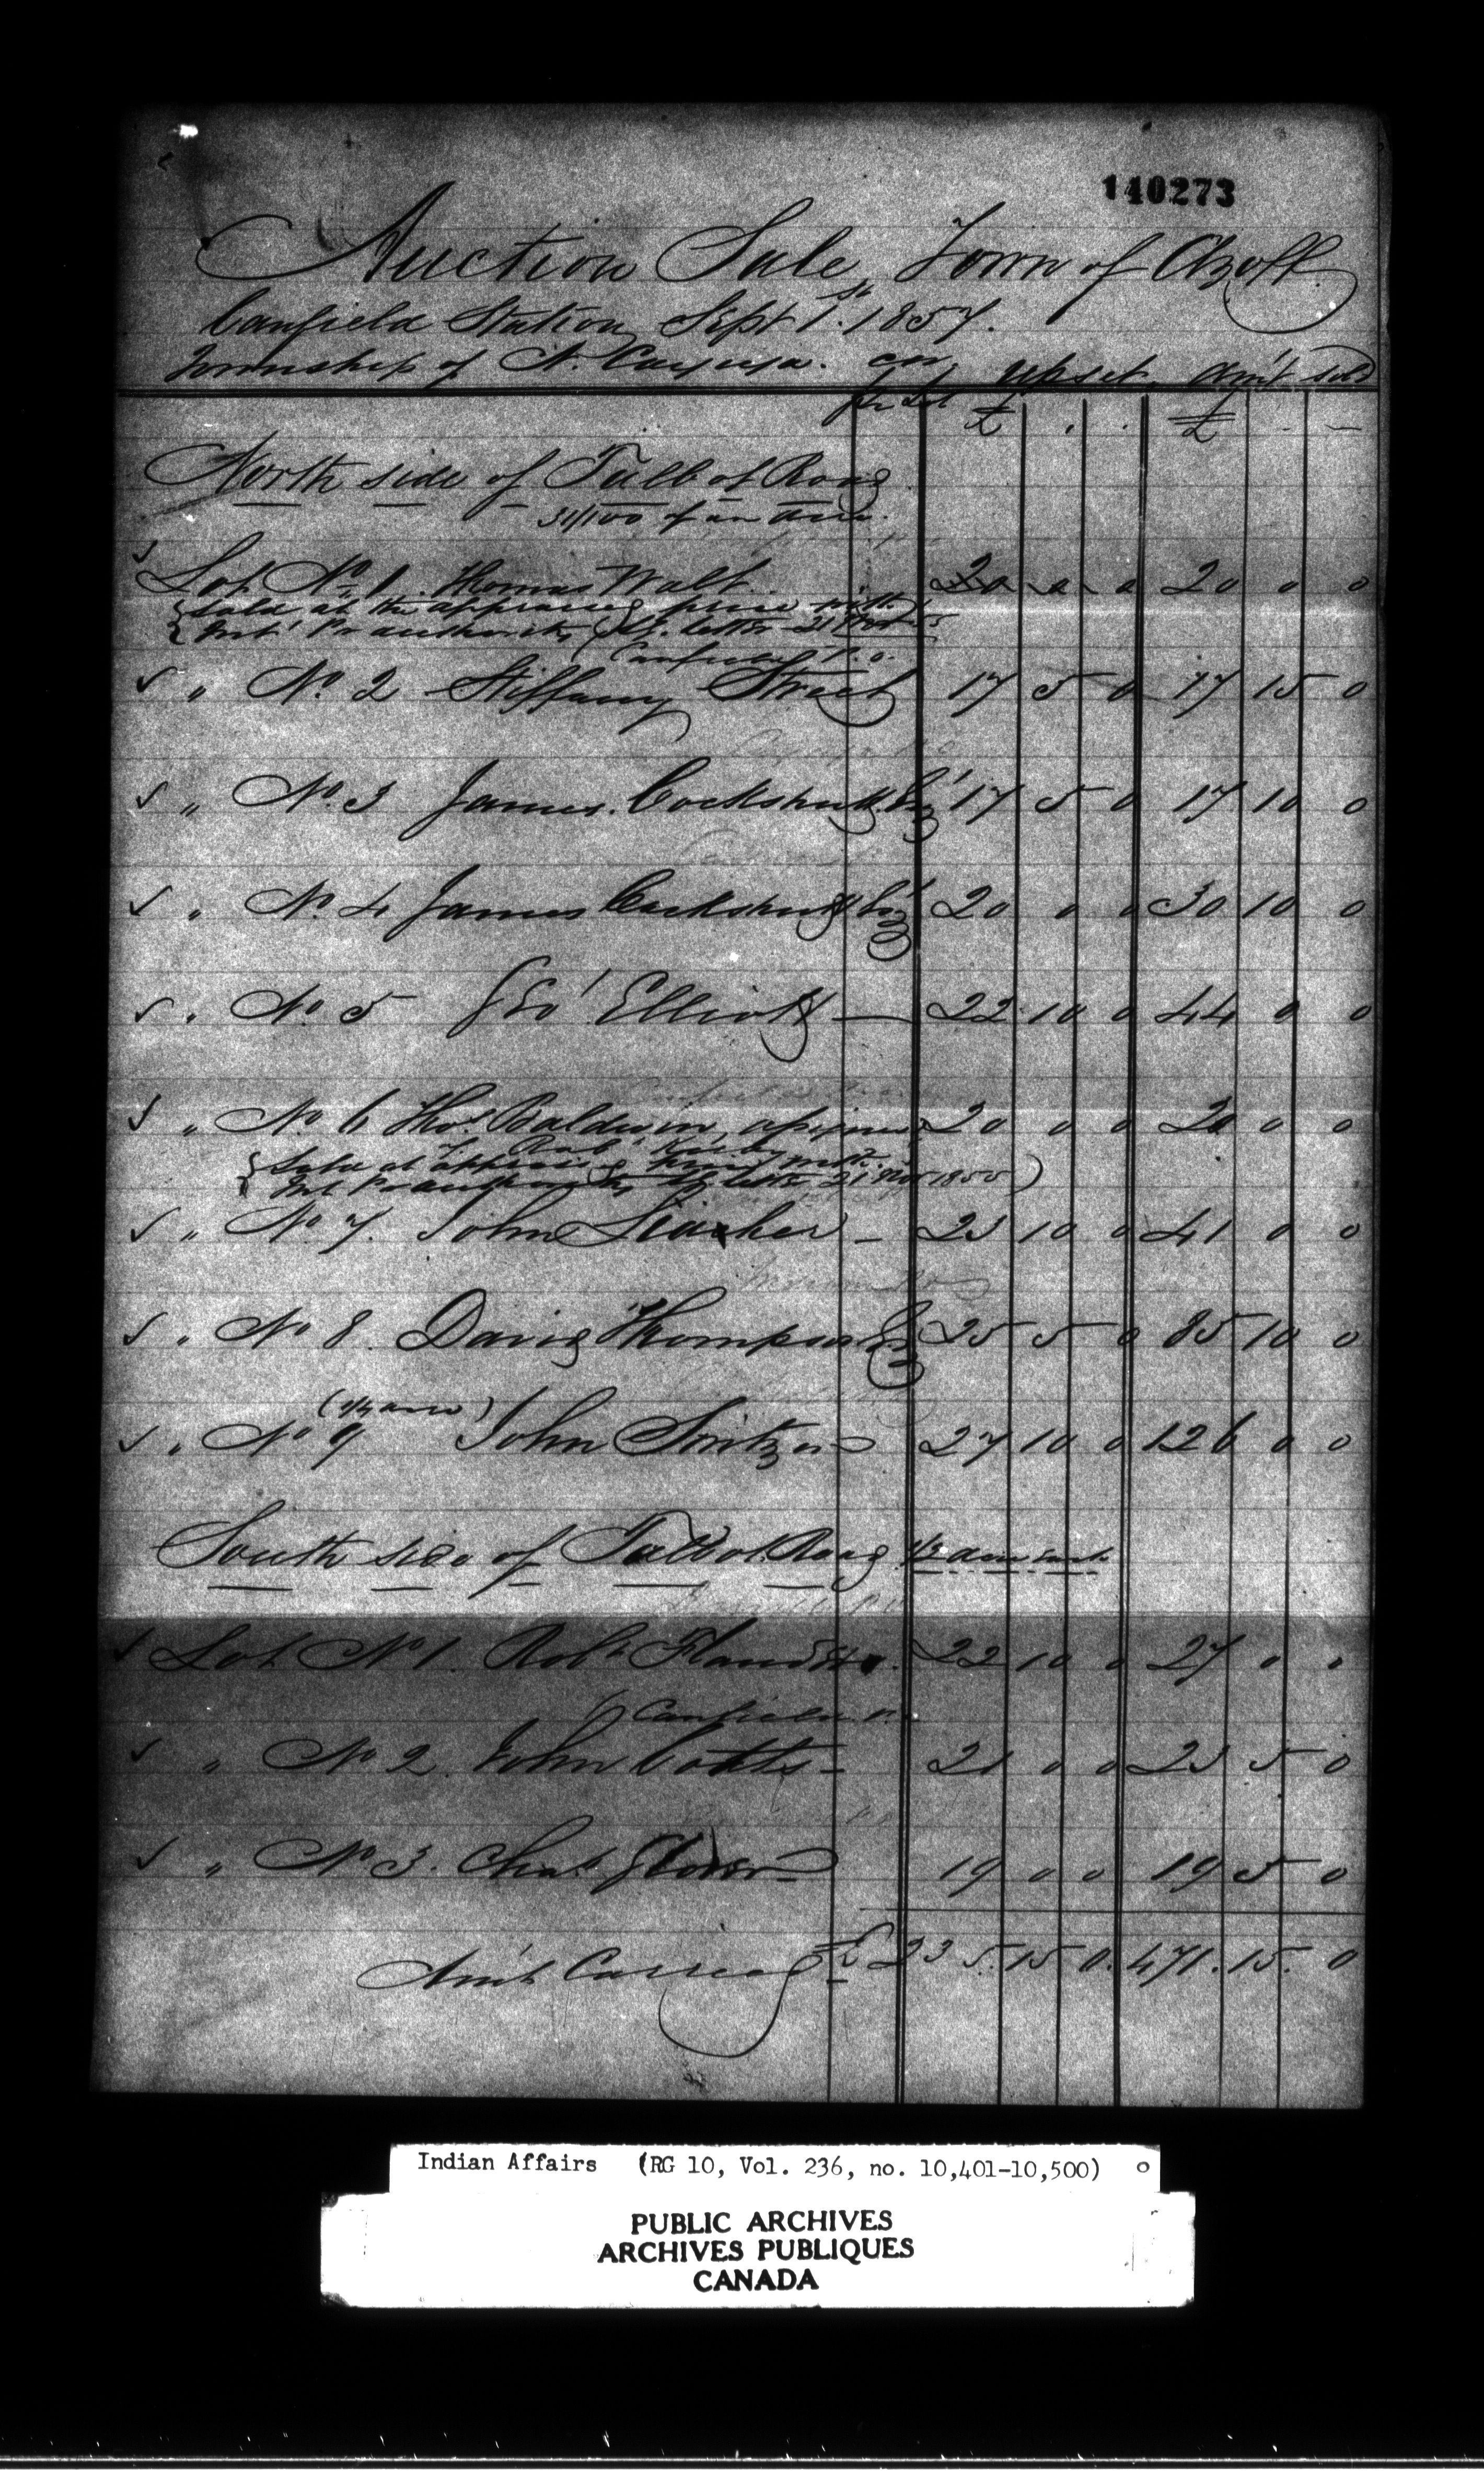 140273
Auction Sale, Town of Azoff
Canfield Station Sept 1st. 1857.
Township of N. Cayuga.
upset. Am't sold
£ £
North side of Talbot Road
31/100 of an Acre.
Lot No 1. Thomas Walt 20 0 0 20 0 0
Sold at the appraised price with
Int' Pr authority letter 21
Canfield P.O.
" No. 2 Stiffany Street 17 5 0 17 15 0
" No. 3 James Cockshutt Esq' 17 5 0 17 10 0
" No. 4 James Cockshutt Esq' 20 0 0 30 10 0
" No 5 Geo' Elliott — 22 10 0 44 0 0
" No 6 Thos. Baldwin, assignee 20 0 0 20 0 0
Sold at price with
Int Pr authority letter 21 Nov 1855)
" No. 7. John 23 10 0 41 0 0
" No 8. David Thompson Esq 25 5 0 85 10 0
(1/4 acre)
" No 9 John 27 10 0 126 0 0
South side of Talbot Road 1/3 acre each
Lot No 1. Robt 22 10 0 27 0 0
Canfield P.
" No 2. John Cotts - 21 0 0 23 5 0
" No 3. Chas. Glover 19 0 0 19 5 0
Am't Carried £ 235. 15 0. 471. 15. 0
Indian Affairs (RG 10, Vol. 236, no. 10,401-10,500)
PUBLIC ARCHIVES
ARCHIVES PUBLIQUES
CANADA